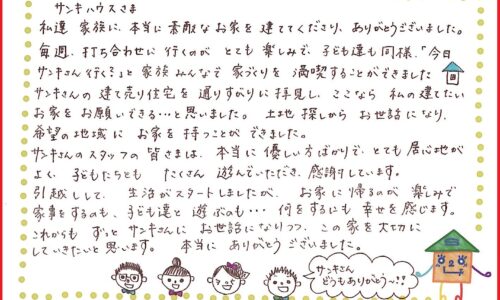 サンキハウスさま
私達 家族に、本当に素敵なお家を 建ててくださり、ありがとうございました。
毎週、打ち合わせに 行くのが とても 楽しみで、子ども達も同様、「今日
サンキさん 行く?」と 家族 みんなで 家づくりを 満喫することができました
サンキさんの 建て売り住宅を 通りすがりに 拝見し、ここなら 私の 建てたい
お家を お願いできる…と思いました。 土地 探しから お世話に なり、
希望の地域に お家を 持つことが できました。
サンキさんのスタッフの 皆さまは、本当に 優しい方ばかりで、とても 居心地が
よく、子どもたちとも たくさん 遊んでいただき、感謝しています。
引越しして、生活が スタートしましたが、 お家に 帰るのが 楽しみで
家事をするのも、子ども達と 遊ぶのも… 何をするにも 幸せを 感じます。
これからも ずっと サンキさんに お世話になりつつ、この 家を 大切に
していきたいと思います。 本当に ありがとうございました。
サンキさん
どうもありがとう〜!!